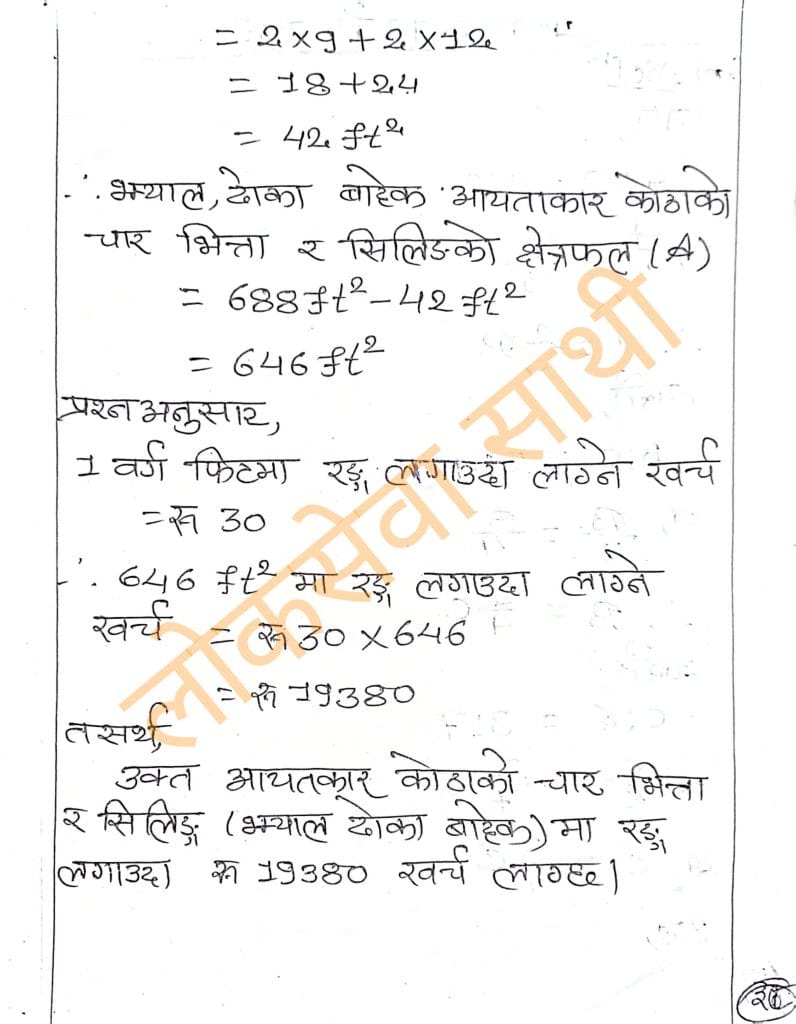 = 2 × 9 + 2 × 12
= 18 + 24
= 42 ft²
∴ झ्याल, ढोका बाहेक आयताकार कोठाको
चार भित्ता र सिलिङको क्षेत्रफल (A)
= 688 ft² - 42 ft²
= 646 ft²
प्रश्नअनुसार,
1 वर्ग फिटमा रङ्ग लगाउदा लाग्ने खर्च
= रू 30
∴ 646 ft² मा रङ्ग लगाउदा लाग्ने
खर्च = रू 30 × 646
= रू 19380
तसर्थ,
उक्त आयतकार कोठाको चार भित्ता
र सिलिङ्ग (झ्याल ढोका बाहेक) मा रङ्ग
लगाउदा रू 19380 खर्च लाग्छ।
लोकसेवा साथी